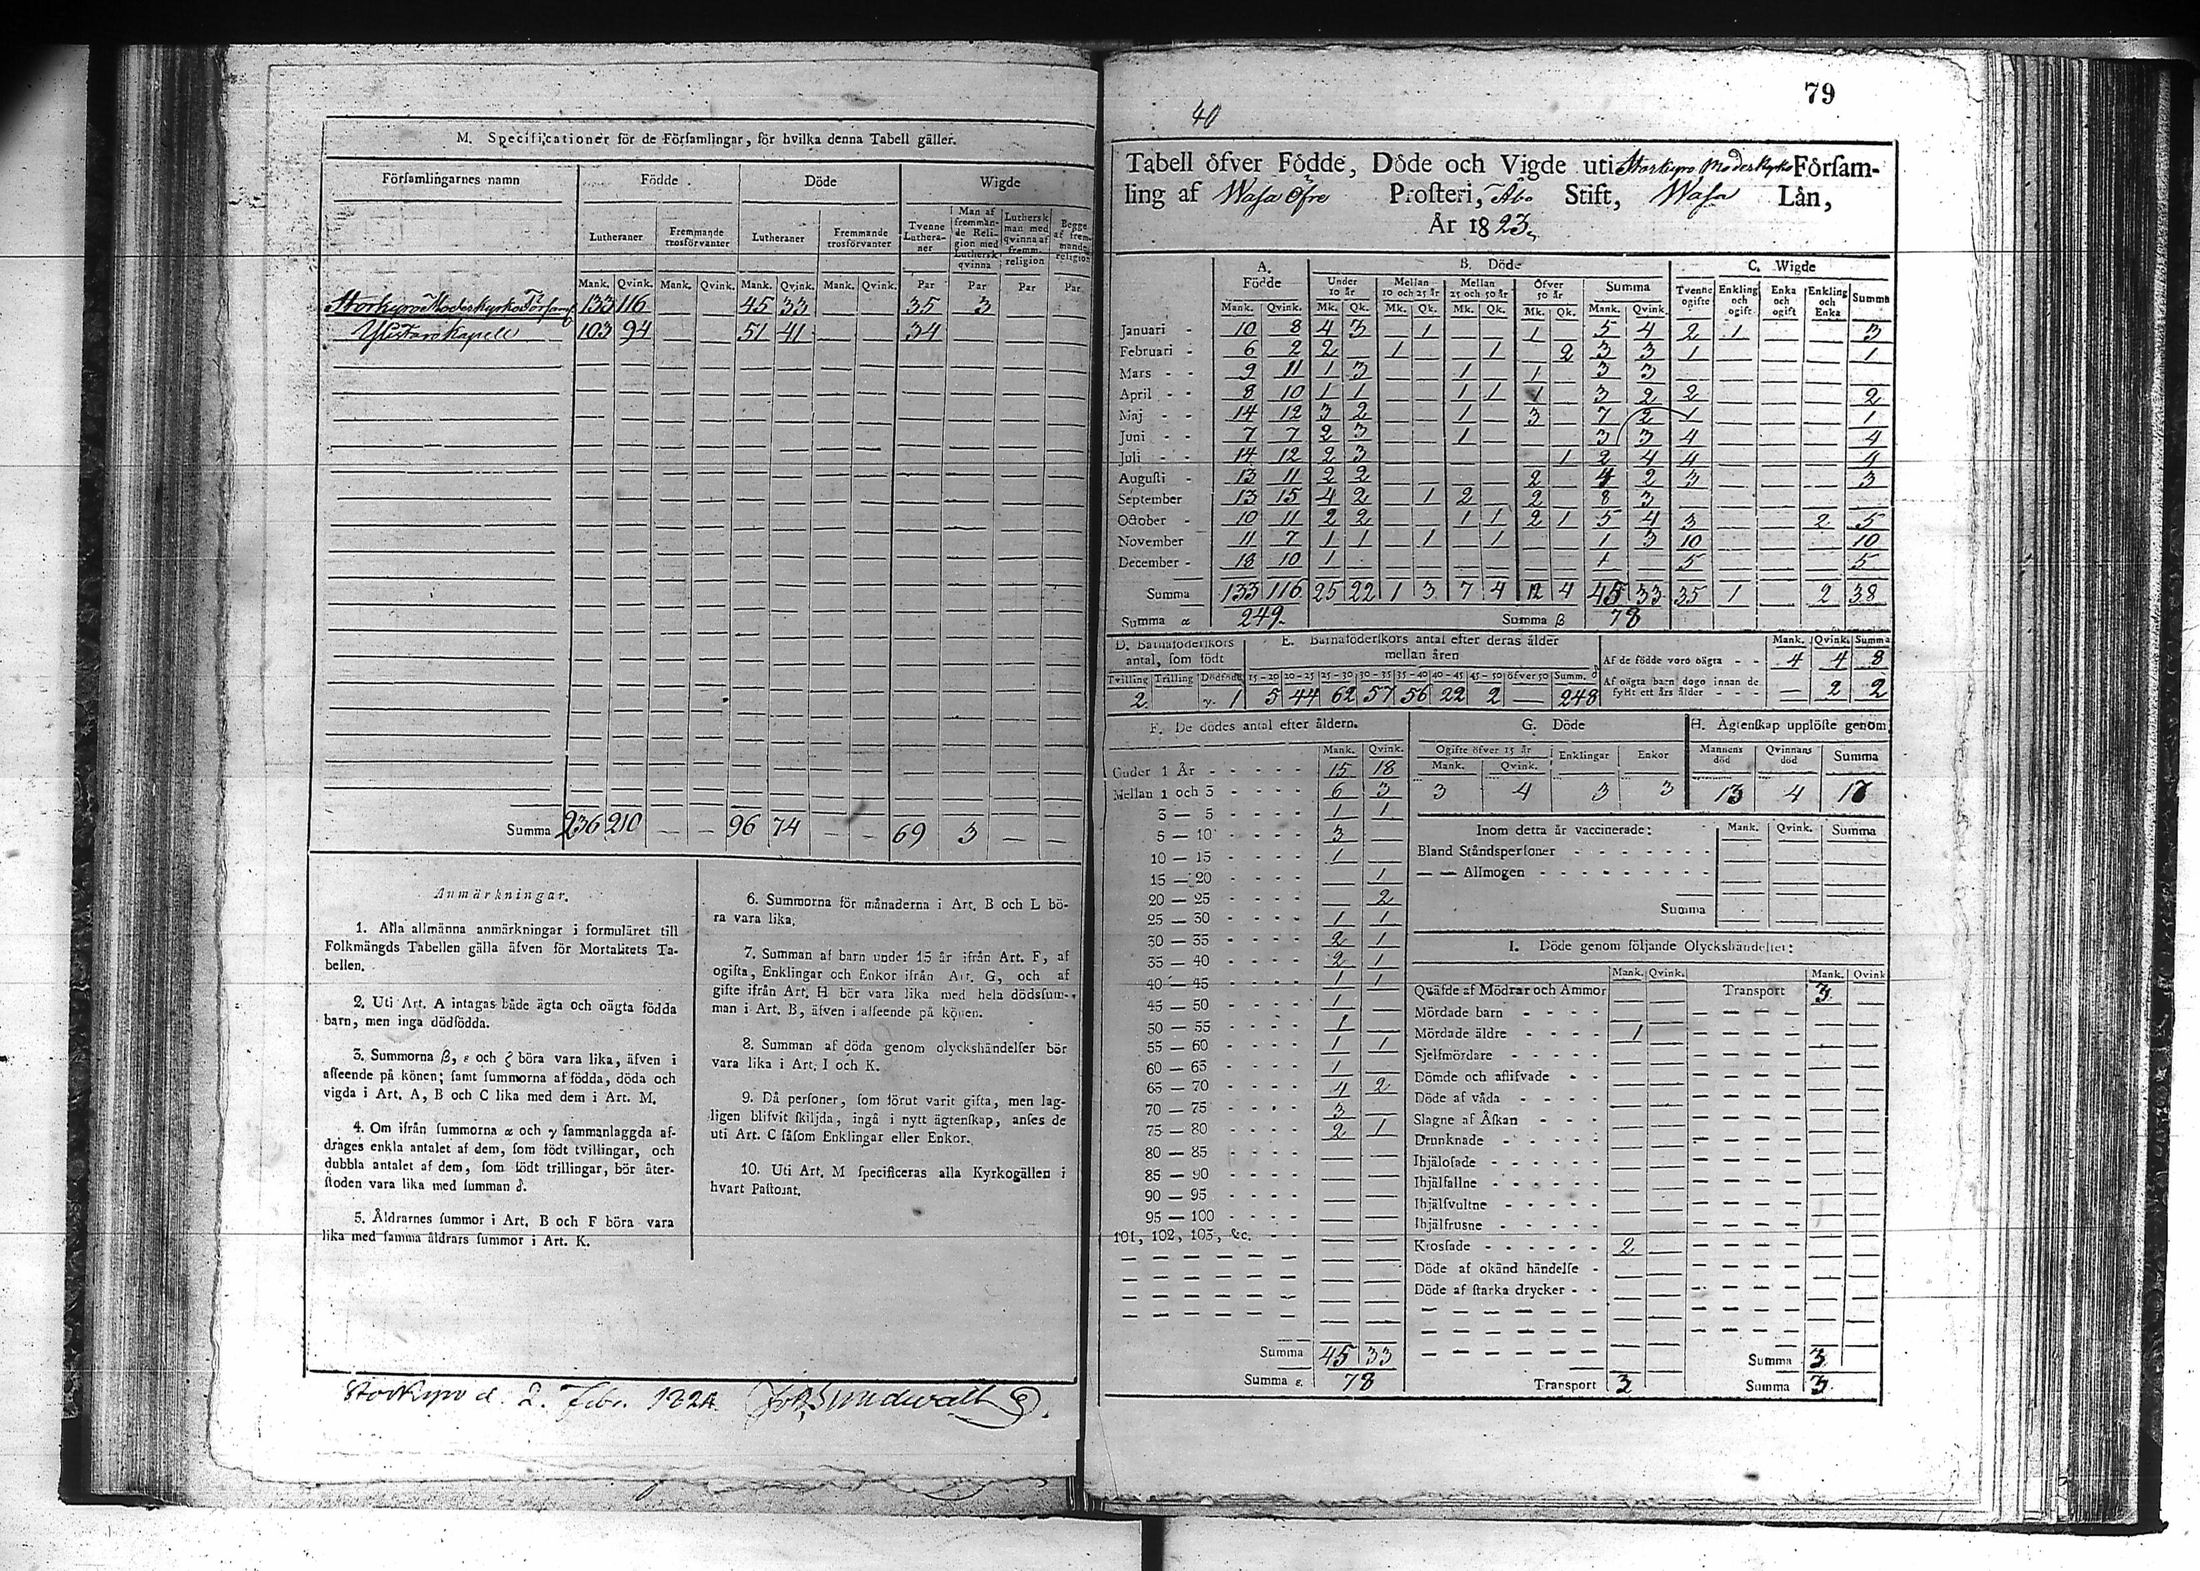 M. Specificationer för de Församlingar, för hvilka denna Tabell gäller.
Församlingarnes namn | Födde | Döde | Wigde
Lutheraner | Fremmande trosförvanter | Lutheraner | Fremmande trosförvanter | Tvenne Lutheraner | Man af fremmande Religion med Luthersk qvinna | Luthersk man med qvinna af fremm. religion | Begge af fremmande religion
Mank. Qvink. Mank. Qvink. Mank. Qvink. Mank. Qvink. Par Par Par Par
Storkyro Moderkyrko Förs. 133 116 45 33 35 3
Kapell 103 94 51 41 34
Summa 236 210 — — 96 74 — — 69 3 — —
Anmärkningar.
1. Alla allmänna anmärkningar i formuläret till
Folkmängds Tabellen gälla äfven för Mortalitets Ta-
bellen.
2. Uti Art. A intagas både ägta och oägta födda
barn, men inga dödfödda.
3. Summorna β, ε och ζ böra vara lika, äfven i
afseende på könen; samt summorna af födda, döda och
vigda i Art. A, B och C lika med dem i Art. M.
4. Om ifrån summorna α och γ sammanlaggda af-
drages enkla antalet af dem, som födt tvillingar, och
dubbla antalet af dem, som födt trillingar, bör åter-
stoden vara lika med summan δ.
5. Åldrarnes summor i Art. B och F böra vara
lika med samma åldrars summor i Art. K.
6. Summorna för månaderna i Art. B och L bö-
ra vara lika.
7. Summan af barn under 15 år ifrån Art. F, af
ogifta, Enklingar och Enkor ifrån Art. G, och af
gifte ifrån Art. H bör vara lika med hela dödsum-
man i Art. B, äfven i afseende på könen.
8. Summan af döda genom olyckshändelser bör
vara lika i Art. I och K.
9. Då personer, som förut varit gifta, men lag-
ligen blifvit skiljda, ingå i nytt ägtenskap, anses de
uti Art. C såsom Enklingar eller Enkor.
10. Uti Art. M specificeras alla Kyrkogällen i
hvart Pastorat.
Storkyro d. 2. Febr. 1824. Joh Sundwall
79
40
Tabell öfver Födde, Döde och Vigde uti Storkyro Moderkyrko Försam-
ling af Wasa Öfre Prosteri, Åbo Stift, Wasa Län,
År 1823.
A. Födde | B. Döde | C. Wigde
Under 10 år | Mellan 10 och 25 år | Mellan 25 och 50 år | Öfver 50 år | Summa | Tvenne ogifte | Enkling och ogift | Enka och ogift | Enkling och Enka | Summa
Mank. Qvink. Mk. Qk. Mk. Qk. Mk. Qk. Mk. Qk. Mank. Qvink.
Januari 10 8 4 3 1 1 5 4 2 1 3
Februari 6 2 2 1 1 2 3 3 1 1
Mars 9 11 1 3 1 1 3 3
April 8 10 1 1 1 1 1 3 2 2 2
Maj 14 12 3 2 1 3 7 2 1 1
Juni 7 7 2 3 1 3 3 4 4
Juli 14 12 2 3 1 2 4 4 4
Augusti 13 11 2 2 2 4 2 3 3
September 13 15 4 2 1 2 2 8 3
October 10 11 2 2 1 1 2 1 5 4 3 2 5
November 11 7 1 1 1 1 1 3 10 10
December 18 10 1 1 5 5
Summa 133 116 25 22 1 3 7 4 12 4 45 33 35 1 — 2 38
Summa α 249. Summa β 78
D. Barnaföderskors antal, som födt
Tvilling Trilling Dödfödd
2 γ. 1
E. Barnaföderskors antal efter deras ålder mellan åren
15-20 20-25 25-30 30-35 35-40 40-45 45-50 öfver 50 Summ. δ
5 44 62 57 56 22 2 — 248
Mank. Qvink. Summa
Af de födde voro oägta - - 4 4 8
Af oägta barn dogo innan de fyllt ett års ålder - - - — 2 2
F. De dödes antal efter åldern.
Mank. Qvink.
Under 1 År 15 18
Mellan 1 och 3 6 3
3 — 5 1 1
5 — 10 3 —
10 — 15 1 —
15 — 20 — 1
20 — 25 — 2
25 — 30 1 1
30 — 35 2 1
35 — 40 2 1
40 — 45 1 1
45 — 50 1 —
50 — 55 1 —
55 — 60 1 1
60 — 65 1 —
65 — 70 4 2
70 — 75 3 —
75 — 80 2 1
80 — 85 — —
85 — 90 — —
90 — 95 — —
95 — 100 — —
101, 102, 103, &c. - -
Summa 45 33
Summa ε. 78
G. Döde
Ogifte öfver 15 år | Enklingar | Enkor
Mank. Qvink.
3 4 3 3
H. Ägtenskap upplöste genom
Mannens död | Qvinnans död | Summa
13 4 17
Inom detta år vaccinerade: Mank. Qvink. Summa
Bland Ståndspersoner
— — Allmogen
Summa
I. Döde genom följande Olyckshändelser:
Mank. Qvink. Mank. Qvink
Qväfde af Mödrar och Ammor — — Transport 3 —
Mördade barn
Mördade äldre 1
Sjelfmördare
Dömde och aflifvade
Döde af våda
Slagne af Åskan
Drunknade
Ihjälosade
Ihjälfallne
Ihjälsvultne
Ihjälfrusne
Krossade 2
Döde af okänd händelse
Döde af starka drycker
Summa 3
Transport 3 Summa 3.